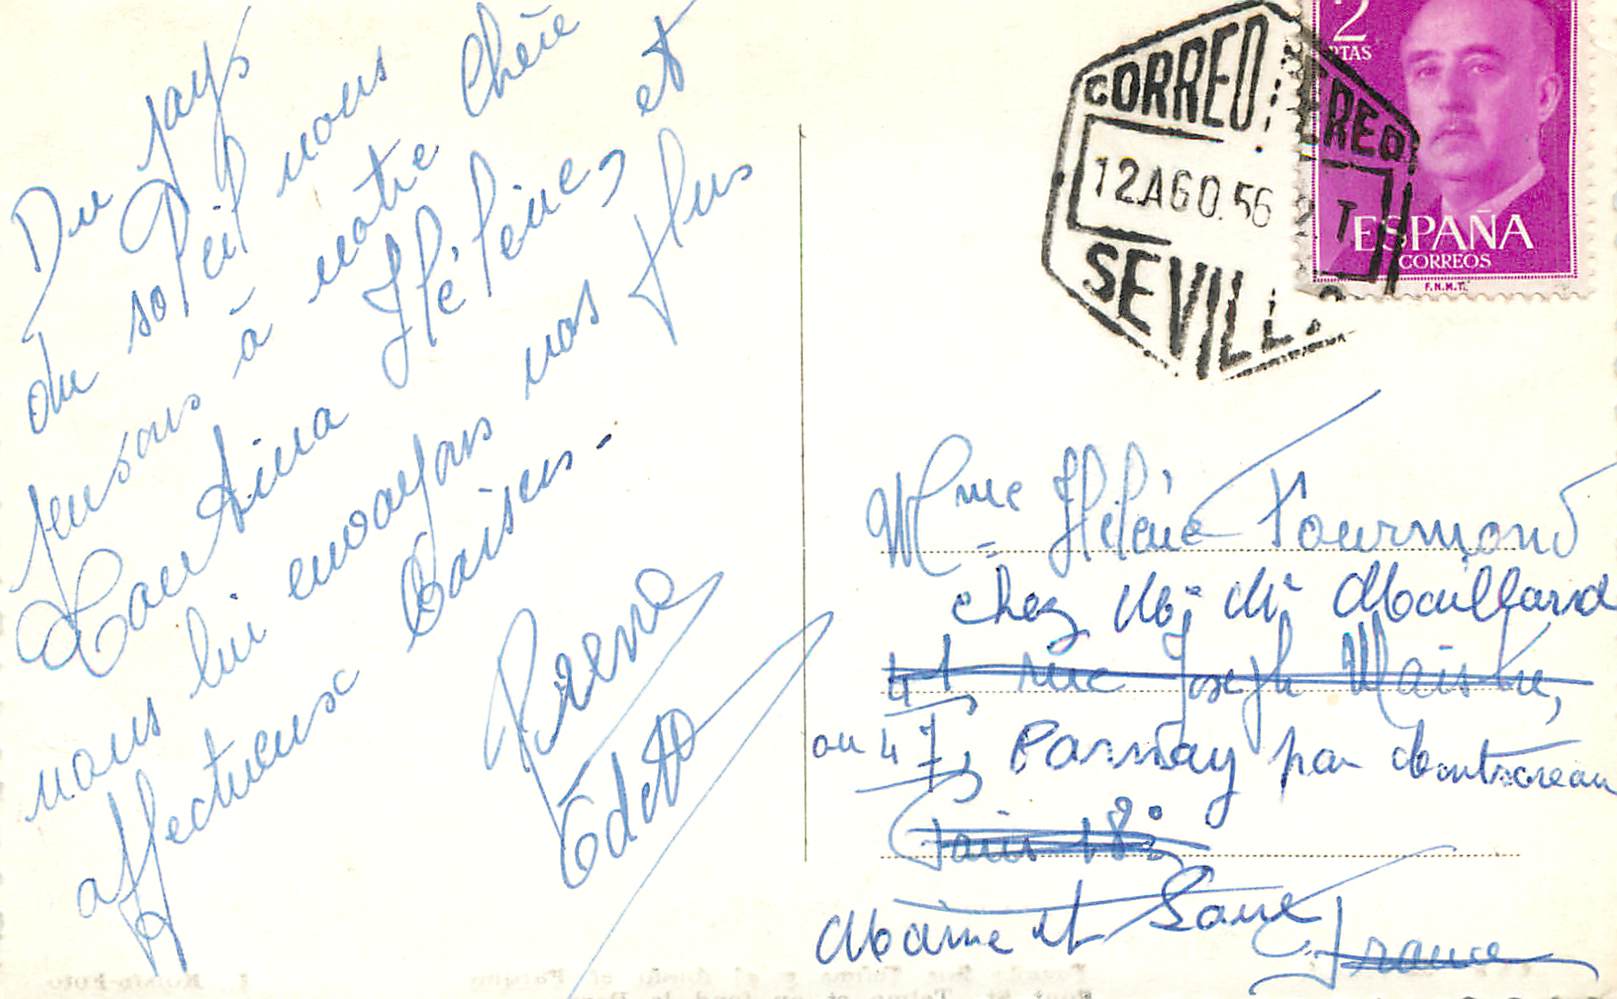 Du pays
du soleil nous
pensons à notre Chère
Tantina Hélène, et
nous lui envoyons nos plus
affectueux Baisers -
Odette
CORREO AEREO
12 AGO. 56
SEVILLA
2
PTAS
ESPAÑA
CORREOS
F.N.M.T.
Mme Hélène Fourmond
chez Mr Mr Maillard
41, rue Joseph Maistre,
ou 47, Parnay par Montsoreau
Paris 18e
Maine et Loire
France